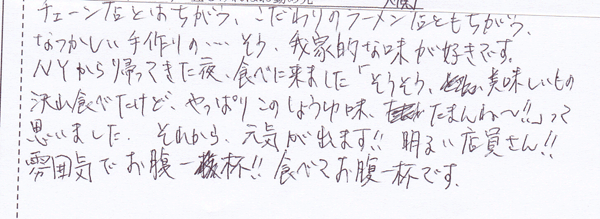 チェーン店とはちがう、こだわりのラーメン店ともちがう、
なつかしい手作りの…そう、我家的な味が好きです。
NYから帰ってきた夜、食べに来ました「そうそう、美味しいもの
沢山食べたけど、やっぱりこのしょうゆ味、たまんね〜!!」って
思いました。それから、元気が出ます!! 明るい店員さん!!
雰囲気でお腹一杯!! 食べてお腹一杯です。